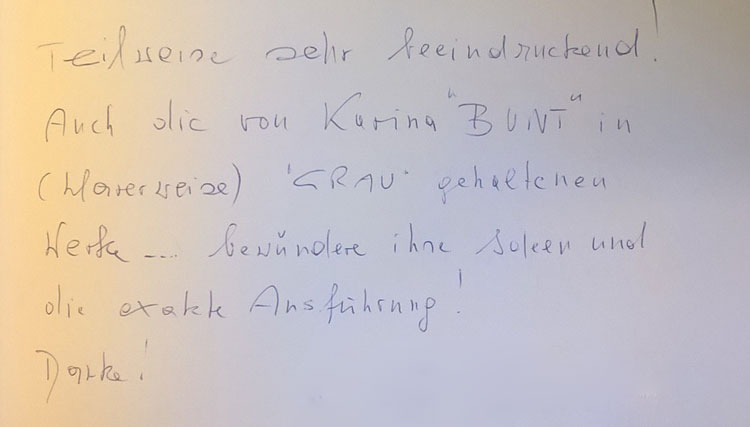 Teilweise sehr beeindruckend!
Auch die von Karina "BUNT" in
(klarerweise) "GRAU" gehaltenen
Werke .... bewundere ihre Ideen und
die exakte Ausführung!
Danke!